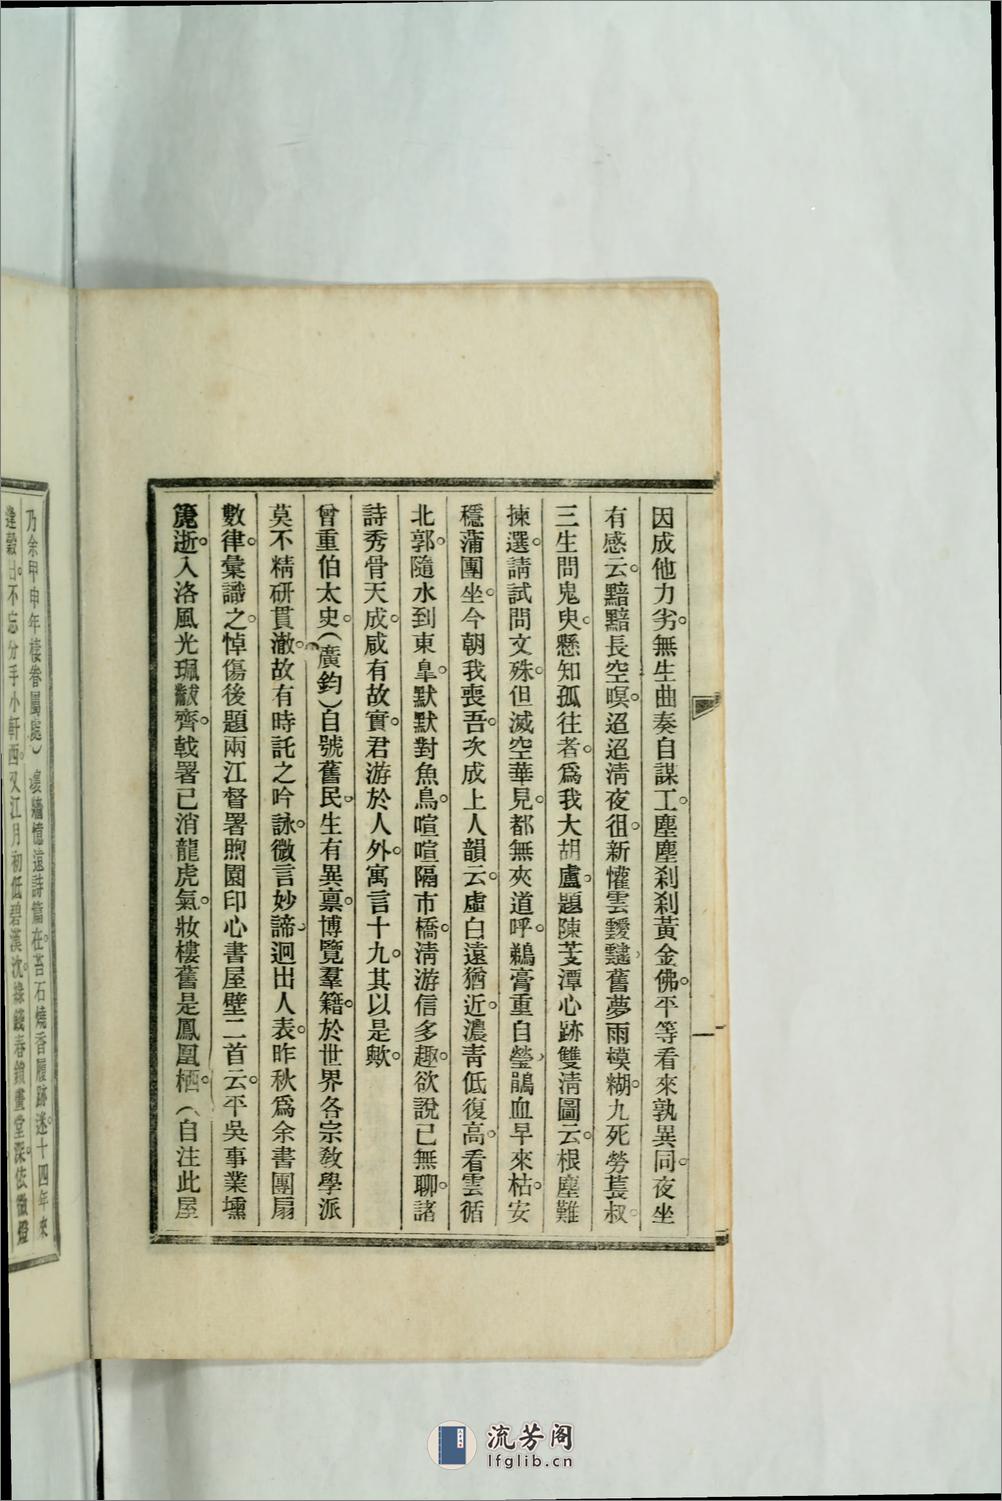 因成他力劣。無生曲奏自謀工。塵塵刹刹黃金佛。平等看來孰異同。夜坐
有感云。黯黯長空暝。迢迢淸夜徂。新懽雲靉靆。舊夢雨模糊。九死勞萇叔。
三生問鬼臾。懸知孤往者。爲我大胡盧。題陳芰潭心跡雙淸圖云。根塵難
揀選。請試問文殊。但滅空華見。都無夾道呼。鵜膏重自瑩。鵑血早來枯。安
穩蒲團坐。今朝我喪吾。次成上人韻云。虛白遠猶近。濃靑低復高。看雲循
北郭。隨水到東皐。默默對魚鳥。喧喧隔市橋。淸游信多趣。欲說已無聊。諸
詩秀骨天成。咸有故實。君游於人外。寓言十九。其以是歟。
曾重伯太史。(廣鈞)自號舊民。生有異禀。博覽羣籍。於世界各宗敎學派
莫不精硏貫澈。故有時託之吟詠。微言妙諦。迥出人表。昨秋爲余書團扇
數律。彙識之。悼傷後題兩江督署煦園印心書屋壁二首云。平吳事業壎
篪逝。入洛風光珮黻齊。戟署已消龍虎氣。妝樓舊是鳳凰栖。(自注此屋
乃余甲申年棲眷屬處)壞牆憶遠詩篇在。苔石燒香履跡迷。十四年來
逢穀日。不忘分手小軒西。又江月初低碧漢沈。綠錢春鎖畫堂深。依微燈
流芳阁
lfglib.cn